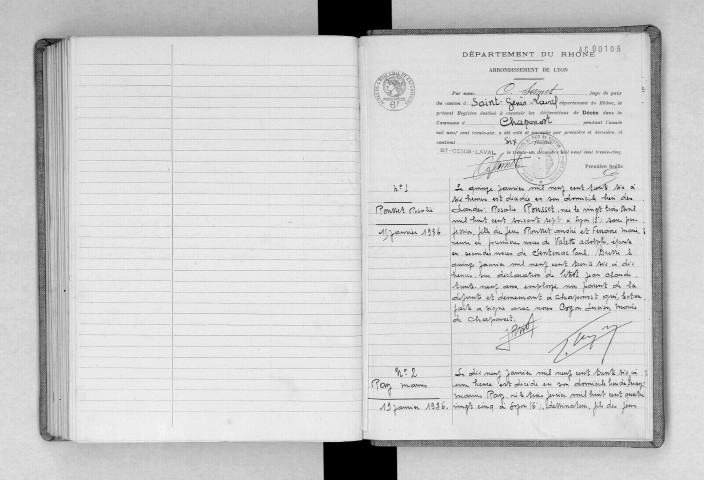 AC00105
DÉPARTEMENT DU RHÔNE
ARRONDISSEMENT DE LYON
Par nous, Juge de paix
du canton d Saint-Genis-Laval département du Rhône, le
présent Registre destiné à recevoir les déclarations de Décès dans la
Commune d Chaponost pendant l'année
mil neuf cent trente-six, a été coté et paraphé par première et dernière, et
contient Six feuillets
ST-GENIS-LAVAL, le trente-un décembre mil neuf cent trente-cinq.
Première feuille
N° 1
Rousset Rosalie
15 janvier 1936
Le quinze janvier mil neuf cent trente six à
six heures est décédée en son domicile lieu des
Rosalie Rousset, née le vingt trois avril
mil huit cent soixante sept à Lyon sans pro-
fession, fille de feu Rousset André et Marie
veuve en premières noces de Valette Adolphe, épouse
en secondes noces de Paul. Dressé le
quinze janvier mil neuf cent trente six à dix
heures, sur déclaration de Jean Claude
trente neuf ans, employé non parent de la
défunte et demeurant à Chaponost qui, lecture
faite a signé avec nous Lucien, maire
de Chaponost.
N° 2
Marius
19 janvier 1936.
Le dix neuf janvier mil neuf cent trente six à
une heure est décédé en son domicile lieu de
Marius né le trois janvier mil huit cent quatre
vingt cinq à Lyon (6e), dessinateur, fils de feu